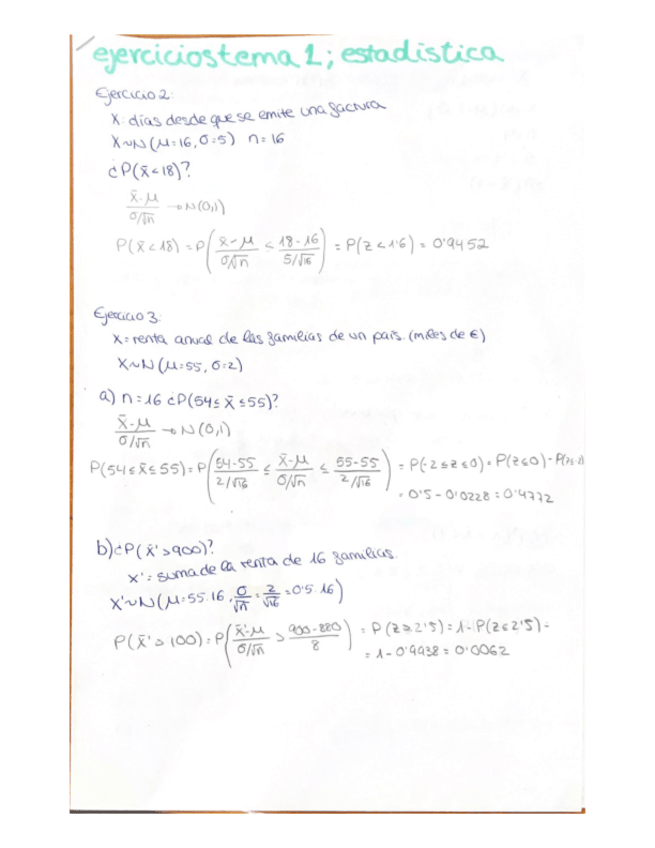 ejercicios tema 1; estadística
Ejercicio 2:
X: días desde que se emite una factura
X~N(μ=16, σ=5) n=16
¿P(x̄<18)?
x̄-μ / σ/√n → N(0,1)
P(x̄<18) = P( x̄-μ / σ/√n < 18-16 / 5/√16 ) = P(Z<1'6) = 0'9452
Ejercicio 3:
X = renta anual de las familias de un país. (miles de €)
X~N(μ=55, σ=2)
a) n=16 ¿P(54≤x̄≤55)?
x̄-μ / σ/√n → N(0,1)
P(54≤x̄≤55) = P( 54-55 / 2/√16 ≤ x̄-μ / σ/√n ≤ 55-55 / 2/√16 ) = P(-2≤z≤0) = P(z≤0) - P(z≤-2)
= 0'5 - 0'0228 = 0'4772
b) ¿P(x̄'>900)?
x': suma de la renta de 16 familias.
x'~N(μ=55·16, σ/√n = 2/√16 = 0'5·16)
P(x̄'>100) = P( x̄'-μ / σ/√n > 900-880 / 8 ) = P(z≥2'5) = 1-P(z≤2'5) =
= 1-0'9938 = 0'0062